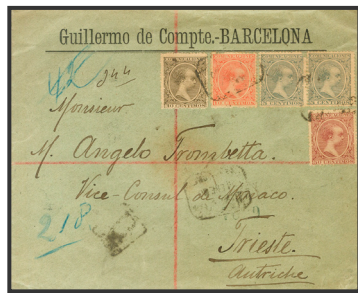 Guillermo de Compte.-BARCELONA
244
Monsieur
M. Angelo Trombetta.
Vice-Consul de Monaco.
218
Trieste.
Autriche